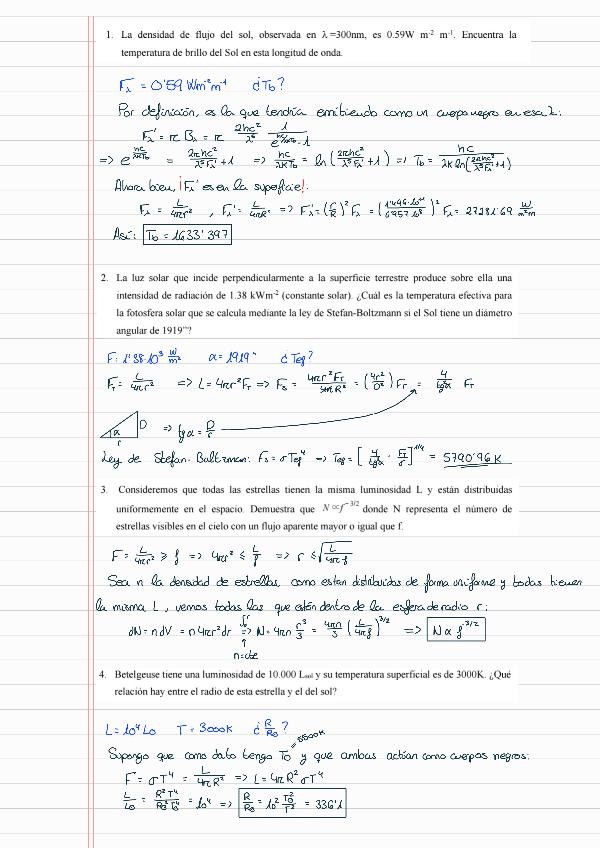 1. La densidad de flujo del sol, observada en λ =300nm, es 0.59W m⁻² m⁻¹. Encuentra la
temperatura de brillo del Sol en esta longitud de onda.
F_λ = 0'59 Wm⁻²m⁻¹ ¿T_b?
Por definición, es la que tendría emitiendo como un cuerpo negro en esa λ:
F_λ' = π B_λ = π 2hc²/λ⁵ 1/(e^(hc/λkT_b) - 1)
=> e^(hc/λkT_b) = 2πhc²/(λ⁵F_λ') + 1 => hc/(λkT_b) = ln(2πhc²/(λ⁵F_λ') + 1) => T_b = hc/(λk ln(2πhc²/(λ⁵F_λ') + 1))
Ahora bien, ¡F_λ' es en la superficie!
F_λ = L/4πr² , F_λ' = L/4πR² => F_λ' = (r/R)² F_λ = (1'496·10¹¹/6'957·10⁸)² F_λ = 27281'69 W/m²m
Así: T_b = 1633'397
2. La luz solar que incide perpendicularmente a la superficie terrestre produce sobre ella una
intensidad de radiación de 1.38 kWm⁻² (constante solar). ¿Cuál es la temperatura efectiva para
la fotosfera solar que se calcula mediante la ley de Stefan-Boltzmann si el Sol tiene un diámetro
angular de 1919"?
F = 1'38·10³ W/m² α = 1919" ¿T_eff?
F_T = L/4πr² => L = 4πr²F_T => F_s = 4πr²F_T/4πR² = (4r²/D²) F_T = 4/tg²α F_T
α r D => tg α = D/r
Ley de Stefan-Boltzman: F_s = σT_eff⁴ => T_eff = [4/tg²α · F_T/σ]^(1/4) = 5790'96 K
3. Consideremos que todas las estrellas tienen la misma luminosidad L y están distribuidas
uniformemente en el espacio. Demuestra que N ∝ f^(-3/2) donde N representa el número de
estrellas visibles en el cielo con un flujo aparente mayor o igual que f.
F = L/4πr² ⩾ f => 4πr² ⩽ L/f => r ⩽ √(L/4πf)
Sea n la densidad de estrellas, como están distribuidas de forma uniforme y todas tienen
la misma L, vemos todas las que estén dentro de la esfera de radio r:
dN = n dV = n 4πr² dr => N = 4πn r³/3 = 4πn/3 (L/4πf)^(3/2) => N ∝ f^(-3/2)
n=cte
4. Betelgeuse tiene una luminosidad de 10.000 L_sol y su temperatura superficial es de 3000K. ¿Qué
relación hay entre el radio de esta estrella y el del sol?
L = 10⁴ L⊙ T = 3000K ¿R/R⊙?
Supongo que como dato tengo T⊙ = 5500K y que ambas actúan como cuerpos negros:
F = σT⁴ = L/4πR² => L = 4πR²σT⁴
L/L⊙ = R²T⁴/R⊙²T⊙⁴ = 10⁴ => R/R⊙ = 10² T⊙²/T² = 336'1